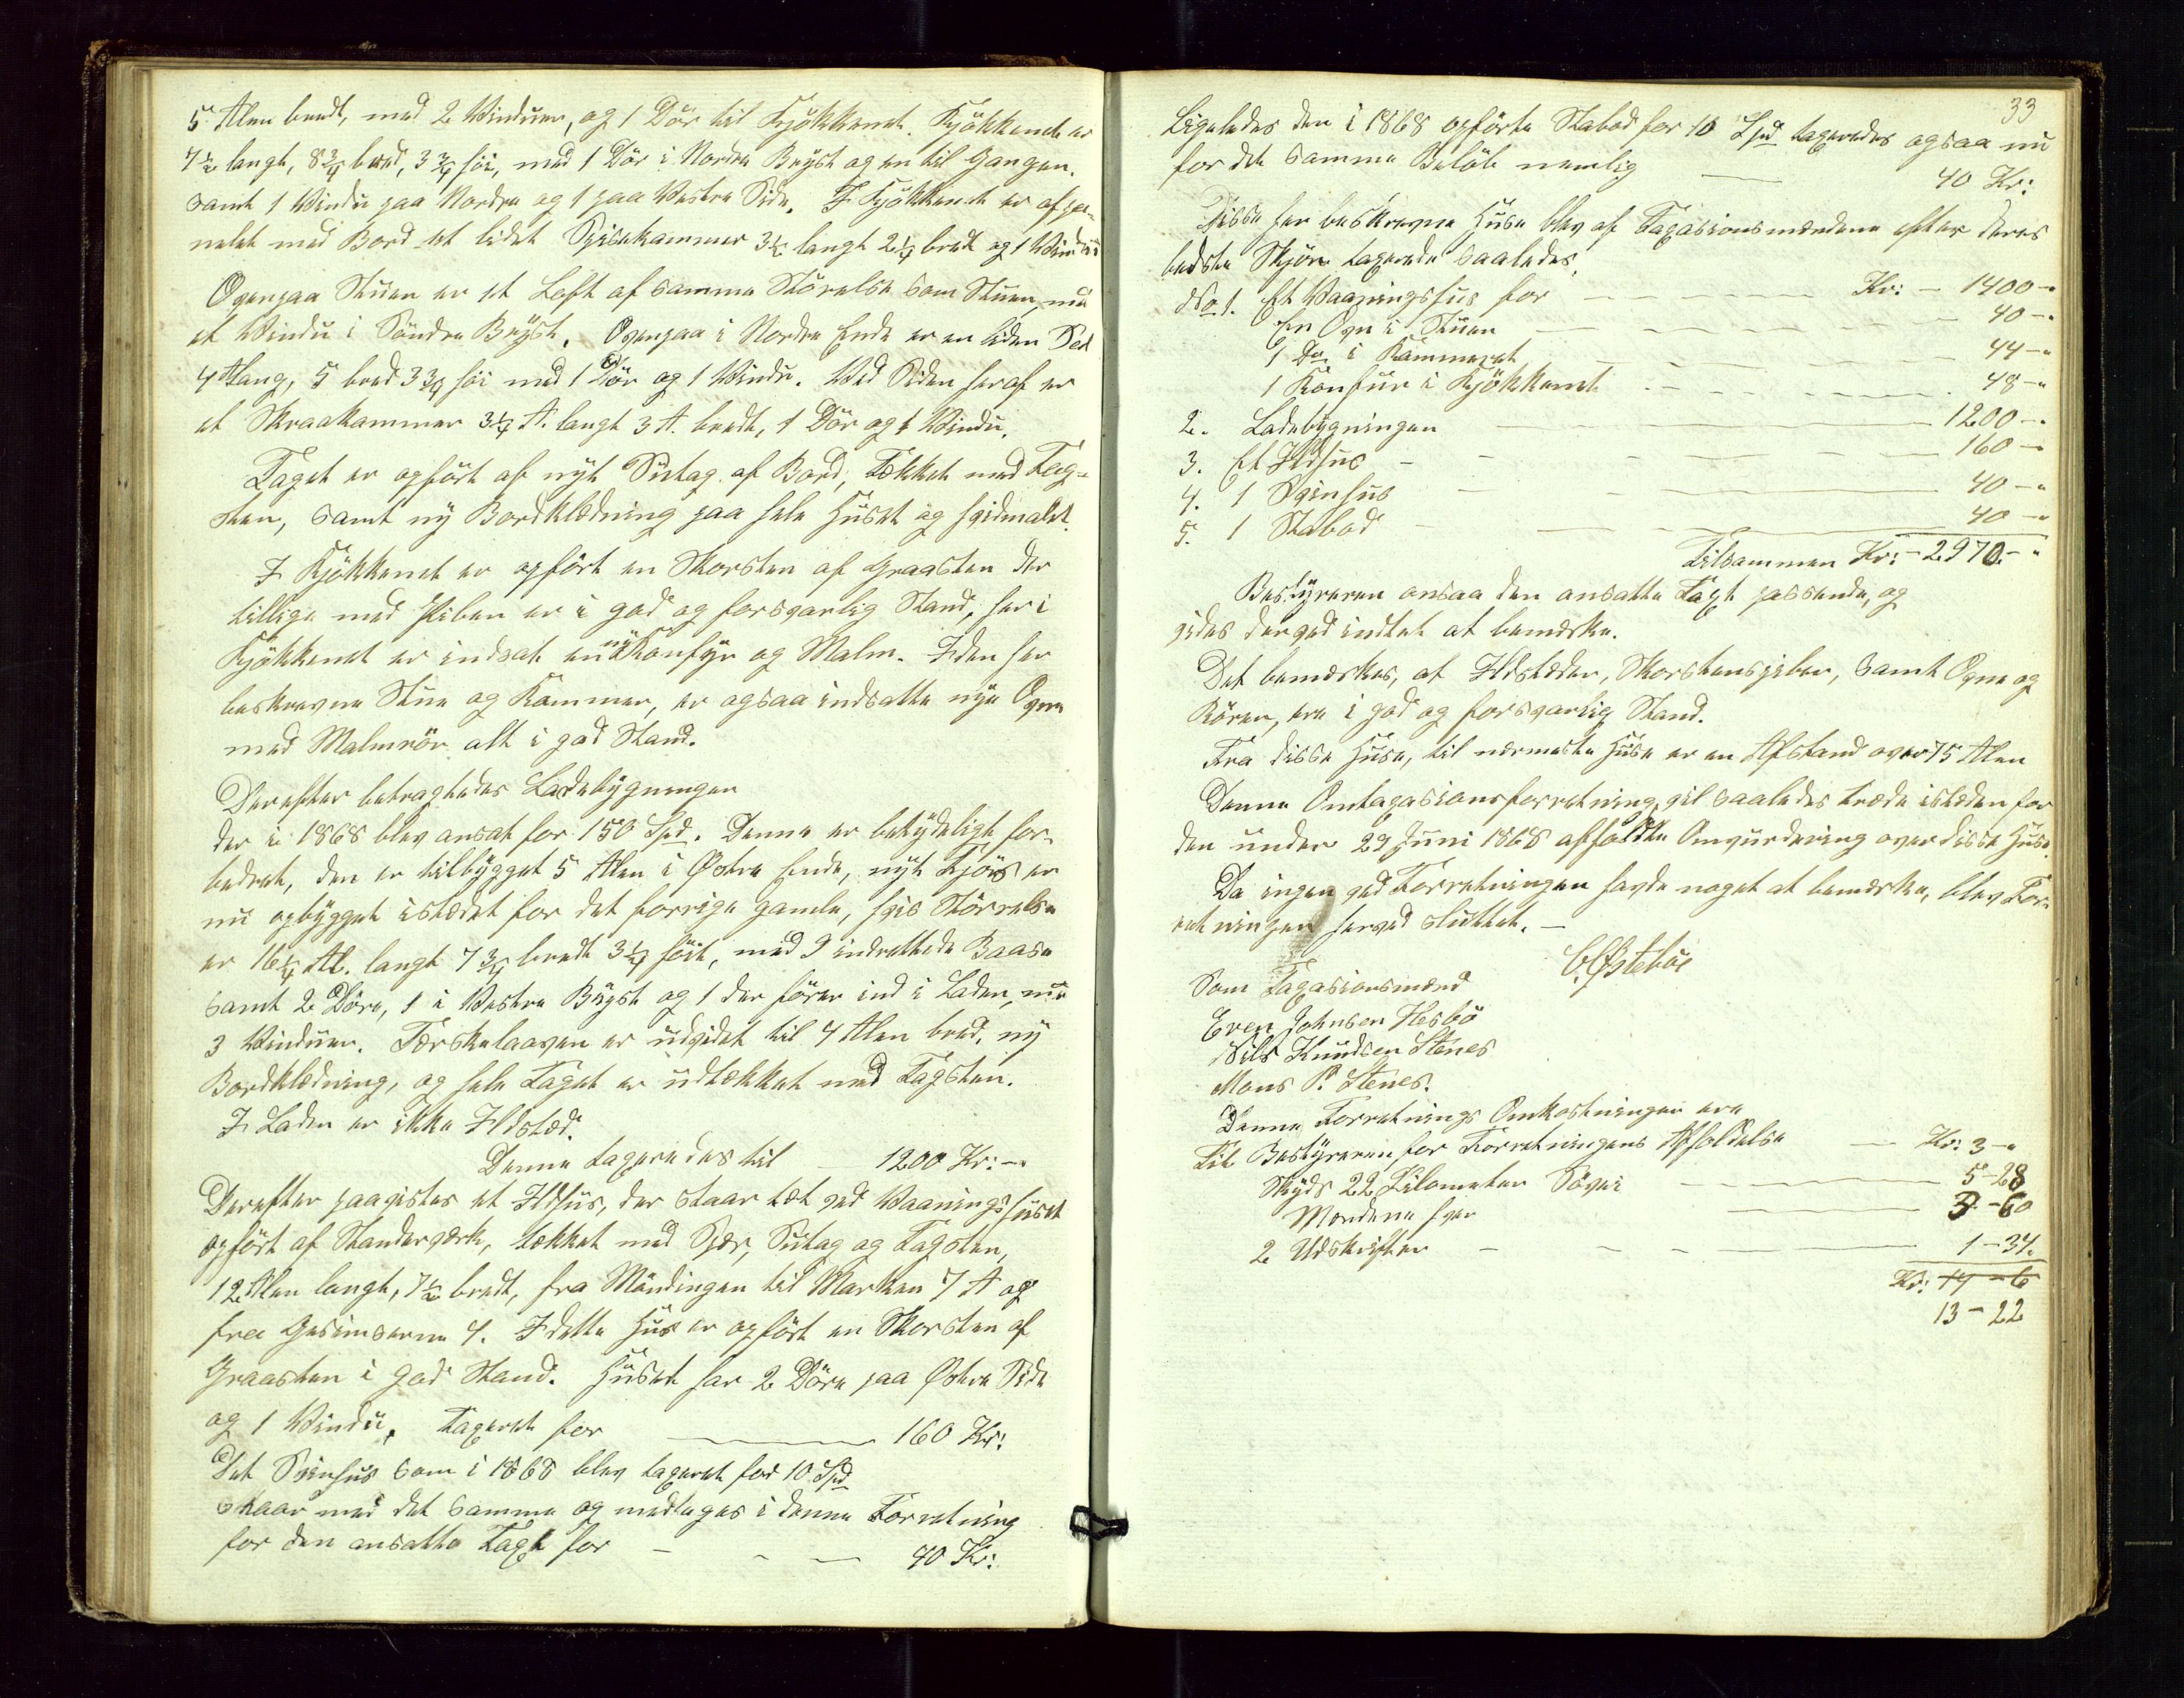 5 Alen bredt, med 2 Vinduer, og 1 Dör til Kjökkenet. Kjökkenet er
7½ langt, 8¾ bred, 3¾ höi, med 1 Dör i Nordre Bryst og en til Gangen.
samt 1 Vindu paa Nordre og 1 paa Vestre Side. I Kjökkenet er afpa-
nelet med Bord et lidet Spisekammer 3½ langt 2¼ bredt og 1 Vindu
Ovenpaa Stuen er et Loft af samme Störelse som Stuen, med
et Vindu i Söndre Bryst. Ovenpaa i Nordre Ende er en liden Sal
4 Al lang, 5 bred 3¾ höi med 1 Dör og 1 Vindu. Ved Siden heraf er
et Skraakammer 3¼ A. langt 3 A. bredt, 1 Dör og 1 Vindu.
Taget er opfört af nyt Sutag af Bord, Tækket med Teg-
sten, samt ny Bordklædning paa hele Huset og hvidmalet.
I Kjökkenet er opfört en Skorsten af Graasten der
tillige med Piben er i god og forsvarlig Stand, her i
Kjökkenet er indsat en ny Konfyr og Malm. I den her
beskrevne Stue og Kammer, er ogsaa indsatte nye Ovne
med Malmrör alt i god Stand.
Derefter betragtedes Ladebygningen
der i 1868 blev ansat for 150 Spd. Denne er betydeligt for-
bedret, den er tilbygget 5 Alen i Østre Ende, nyt Fjös er
nu opbygget istædet for det forrige gamle, hvis Störrelse
er 16¼ Al. langt 7¾ bredt 3¼ höit, med 9 indrettede Baase
samt 2 Döre, 1 i Vestre Bryst og 1 der förer ind i Laden, med
3 Vinduer. Tærskelaaven er udvidet til 4 Alen bred, ny
Bordklædning, og hele Taget er udtækket med Tagsten.
I Laden er ikke Ildsted.
Denne taxeredes til – 1200 Kr: –"
Derefter paavistes et Ildhus, der staar tæt ved Vaaningshuset
opfört af Standerværk, tækket med Spær, Sutag og Tagsten,
12 Alen langt, 7½ bredt, fra Möndingen til Marken 7 A og
fra Gesimserne 4. I dette Hus er opfört en Skorsten af
Graasten i god Stand. Huset har 2 Döre paa Østre Side
og 1 Vindu. Taxeret for — 160 Kr:
Det Svinhus som i 1868 blev taxeret for 10 Spd
staar med det samme og medtages i denne Forretning
for den ansatte Taxt for – – – 40 Kr:
33
Ligeledes den i 1868 opförte Stabod for 10 Spd taxeredes ogsaa nu
for det samme Belöb nemlig — 40 Kr:
Disse her beskrevne Huse blev af Taxasionsmændene efter deres
bedste Skjön taxerede saaledes.
No 1. Et Vaaningshus for – – – Kr: – 1400 –"
En Ovn i Stuen – – – 40 –"
1 Do i Kammeret – – – 44 –"
1 Konfur i Kjökkenet – – – 48 –"
2. Ladebygningen — 1200 –"
3. Et Ildhus – – – 160 –"
4. 1 Svinhus – – – 40 –"
5. 1 Stabod – – – 40 –"
Tilsammen Kr: – 2970 – "
Bestyreren ansaa den ansatte Taxt passende, og
vides derved indtet at bemærke.
Det bemærkes, at Ildstæder, Skorstenspiber, samt Ovne og
Rören, ere i god og forsvarlig Stand.
Fra disse Huse, til nærmeste Huse er en Afstand over 75 Alen
Denne Omtaxasionsforretning, vil saaledes træde istæden for
den under 29 Juni 1868 afholdte Omvurdering over disse Huse.
Da ingen ved Forretningen havde noget at bemærke, blev For-
retningen herved sluttet. –
C. Østeböe
Som Taxasionsmænd
Even Johnsen Hesbö
Nils Knudsen Stenes
Mons P. Stenes.
Denne Forretnings Omkostninger ere
Til Bestyreren for Forretningens Afholdelse — Kr: 3 –"
Skyds 22 Kilometer Sövei — 5 – 28
Mændene hver — 3 – 60
2 Udskrifter – – – — 1 – 34.
Kr: 14 – 6
13 – 22